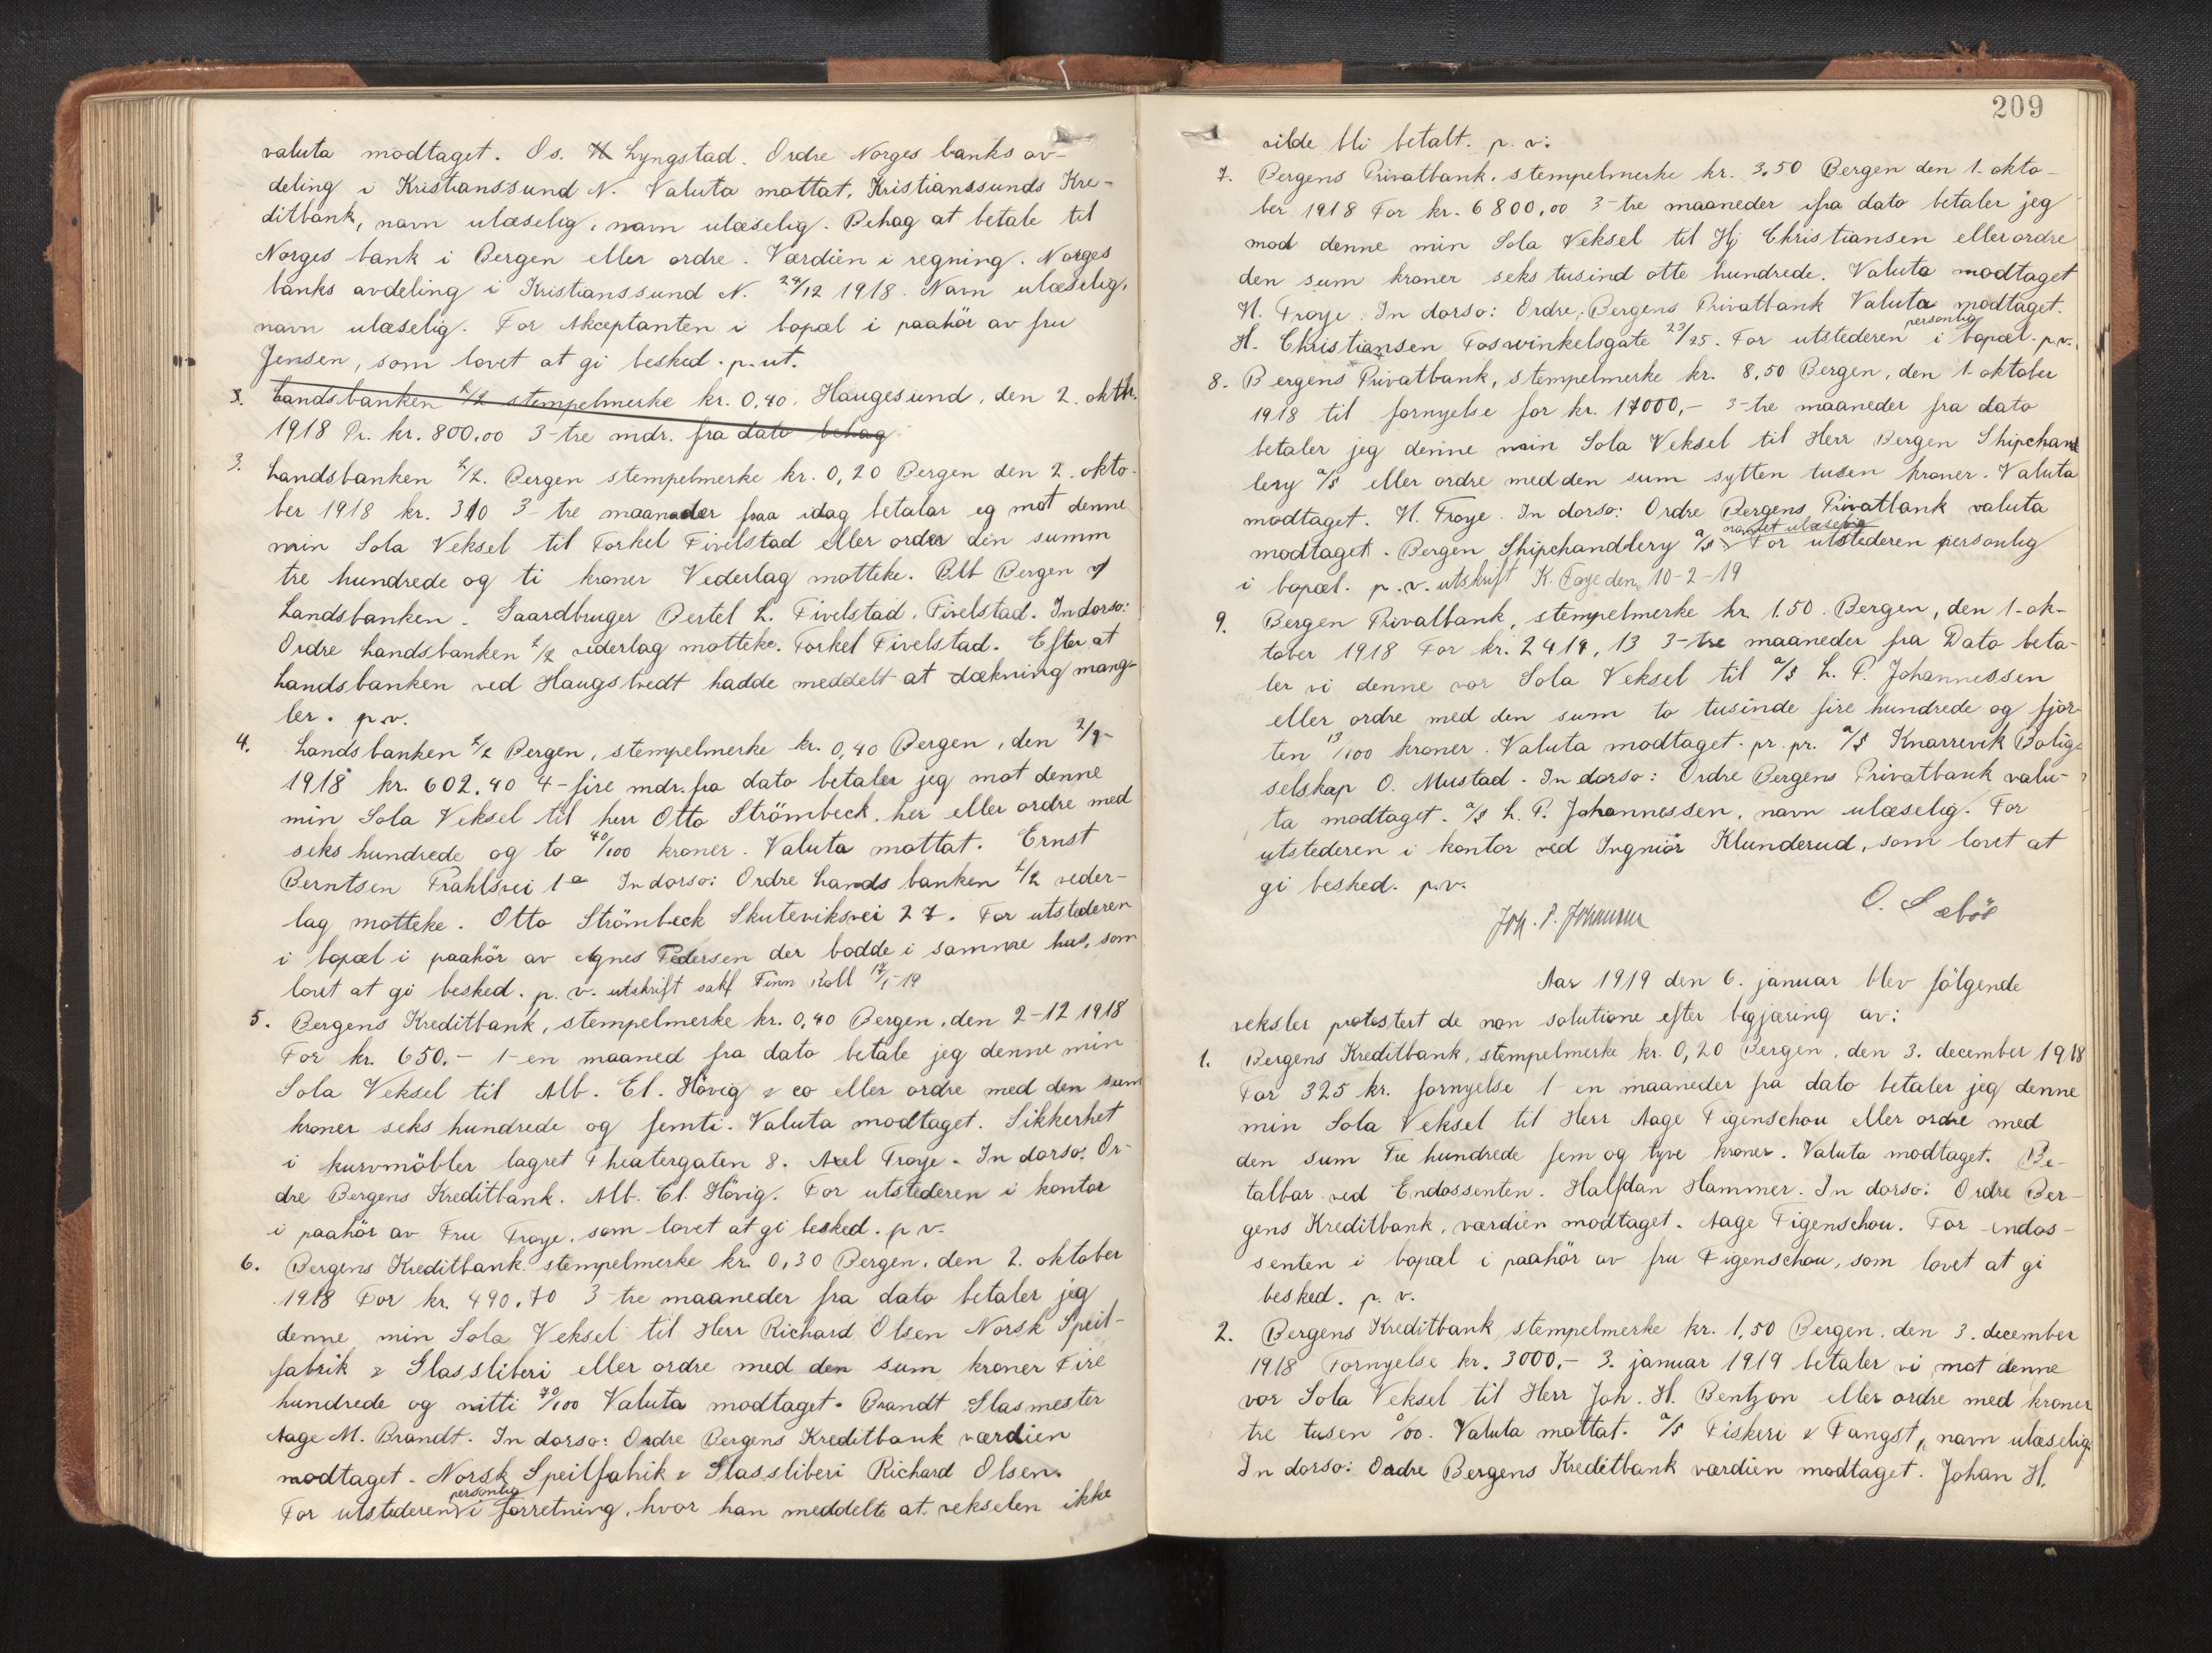 valuta modtaget. Os. Lyngstad. Ordre Norges banks av-
deling i Kristianssund N. Valuta mottat, Kristianssunds Kre-
ditbank, navn ulæselig, navn ulæselig. Behag at betale til
Norges bank i Bergen eller ordre. Værdien i regning. Norges
banks avdeling i Kristianssund N. 24/12 1918. Navn ulæselig,
navn ulæselig. For Akceptanten i bopæl i paahör av fru
Jensen, som lovet at gi besked. p. ut.
3. Landsbanken stempelmerke kr. 0,40. Haugesund, den 2. oktbr.
1918 Pr. kr. 800,00 3-tre mdr. fra dato behag
3. Landsbanken Bergen stempelmerke kr. 0,20 Bergen den 2. okto-
ber 1918 kr. 310 3-tre maanader fraa idag betalar eg mot denne
min Sola Veksel til Torkel Fivelstad eller order den summ
tre hundrede og ti kroner Vederlag motteke. Blb Bergen
Landsbanken. Gaardbruger Bertel L. Fivelstad. Fivelstad. In dorso:
Ordre Landsbanken vederlag motteke. Torkel Fivelstad. Efter at
Landsbanken ved Haugstvedt hadde meddelt at dækning mang-
ler. p.v.
4. Landsbanken Bergen, stempelmerke kr. 0,40 Bergen, den 2/9-
1918 kr. 602.40 4-fire mdr. fra dato betaler jeg mot denne
min Sola Veksel til herr Otto Strömbeck, her eller ordre med
seks hundrede og to 40/100 kroner. Valuta mottat. Ernst
Berntsen Prahlsvei 1a In dorso: Ordre Landsbanken veder-
lag motteke. Otto Strömbeck Skuteviksvei 27. For utstederen
i bopæl i paahör av Agnes Pedersen der bodde i samme hus, som
lovet at gi besked. p. v. utskrift sakf Finn Koll 17/1-19
5. Bergens Kreditbank, stempelmerke kr. 0,40 Bergen, den 2-12 1918
For kr. 650.- 1-en maaned fra dato betale jeg denne min
Sola Veksel til Alb. El. Hövig & co eller ordre med den sum
kroner seks hundrede og femti. Valuta modtaget. Sikkerhet
i kurvmöbler lagret Theatergaten 8. Axel Troye. In dorso: Or-
dre Bergens Kreditbank. Alb. El. Hövig. For utstederen i kontor
i paahör av Fru Troye, som lovet at gi besked. p v.
6. Bergens Kreditbank stempelmerke kr. 0,30 Bergen, den 2. oktober
1918 For kr. 490,70 3-tre maaneder fra dato betaler jeg
denne min Sola Veksel til Herr Richard Olsen Norsk Speil-
fabrik & Glassliberi eller ordre med den sum kroner Fire
hundrede og nitti 70/100 Valuta modtaget. Brandt Glasmester
Aage M. Brandt. In dorso: Ordre Bergens Kreditbank værdien
modtaget. Norsk Speilfabrik & Glassliberi Richard Olsen.
For utstederen personlig i forretning, hvor han meddelte at vekselen ikke
209
vilde bli betalt. p. v.
7. Bergens Privatbank, stempelmerke kr. 3,50 Bergen den 1. okto-
ber 1918 For kr. 6800,00 3-tre maaneder ifra dato betaler jeg
mod denne min Sola Veksel til Hj Christiansen eller ordre
den sum kroner seks tusind otte hundrede. Valuta modtaget
H. Troye. In dorso: Ordre, Bergens Privatbank Valuta modtaget.
H. Christiansen Foswinkelsgate 23/25. For utstederen personlig i bopæl. p.v.
8. Bergens Privatbank, stempelmerke kr. 8,50 Bergen, den 1. oktober
1918 til fornyelse for kr. 17000,- 3-tre maaneder fra dato
betaler jeg denne min Sola Veksel til Herr Bergen Shipchand
lery a/s eller ordre med den sum sytten tusen kroner. Valuta
modtaget. H. Troye. In dorso: Ordre Bergens Privatbank valuta
modtaget. Bergen Shipchandlery a/s navnet ulæselig For utstederen personlig
i bopæl. p.v. utskrift K. Faye den 10-2-19
9. Bergen Privatbank, stempelmerke kr. 1.50. Bergen, den 1-ok-
tober 1918 For kr. 2414,13 3-tre maaneder fra Dato beta-
ler vi denne vor Sola Veksel til a/s L. P. Johannessen
eller ordre med den sum to tusinde fire hundrede og fjor-
ten 13/100 kroner. Valuta modtaget. pr. pr. a/s Knarrevik Bolig-
selskap O. Mustad. In dorso: Ordre Bergens Privatbank valu-
ta modtaget. a/s L. P. Johannessen, navn ulæselig. For
utstederen i kontor ved Ingniör Klunderud, som lovet at
gi besked. p.v.
O. Sæböe
Aar 1919 den 6. januar blev följende
veksler protestert de non solutione efter begjæring av:
1. Bergens Kreditbank, stempelmerke kr. 0,20 Bergen, den 3. december 1918
For 325 kr. fornyelse 1-en maaneder fra dato betaler jeg denne
min Sola Veksel til Herr Aage Figenschou eller ordre med
den sum Tre hundrede fem og tyve kroner. Valuta modtaget. Be-
talbar ved Endossenten. Halfdan Hammer. In dorso: Ordre Ber-
gens Kreditbank, værdien modtaget. Aage Figenschou. For endos-
senten i bopæl i paahör av fru Figenschou, som lovet at gi
besked. p. v.
2. Bergens Kreditbank, stempelmerke kr. 1,50 Bergen. den 3. december
1918 Fornyelse kr. 3000.- 3. januar 1919 betaler vi mot denne
vor Sola Veksel til Herr Joh. H. Bentzon eller ordre med kroner
tre tusen 0/00. Valuta mottat. a/s Fiskeri & Fangst, navn ulæselig.
In dorso: Ordre Bergens Kreditbank værdien modtaget. Johan H.